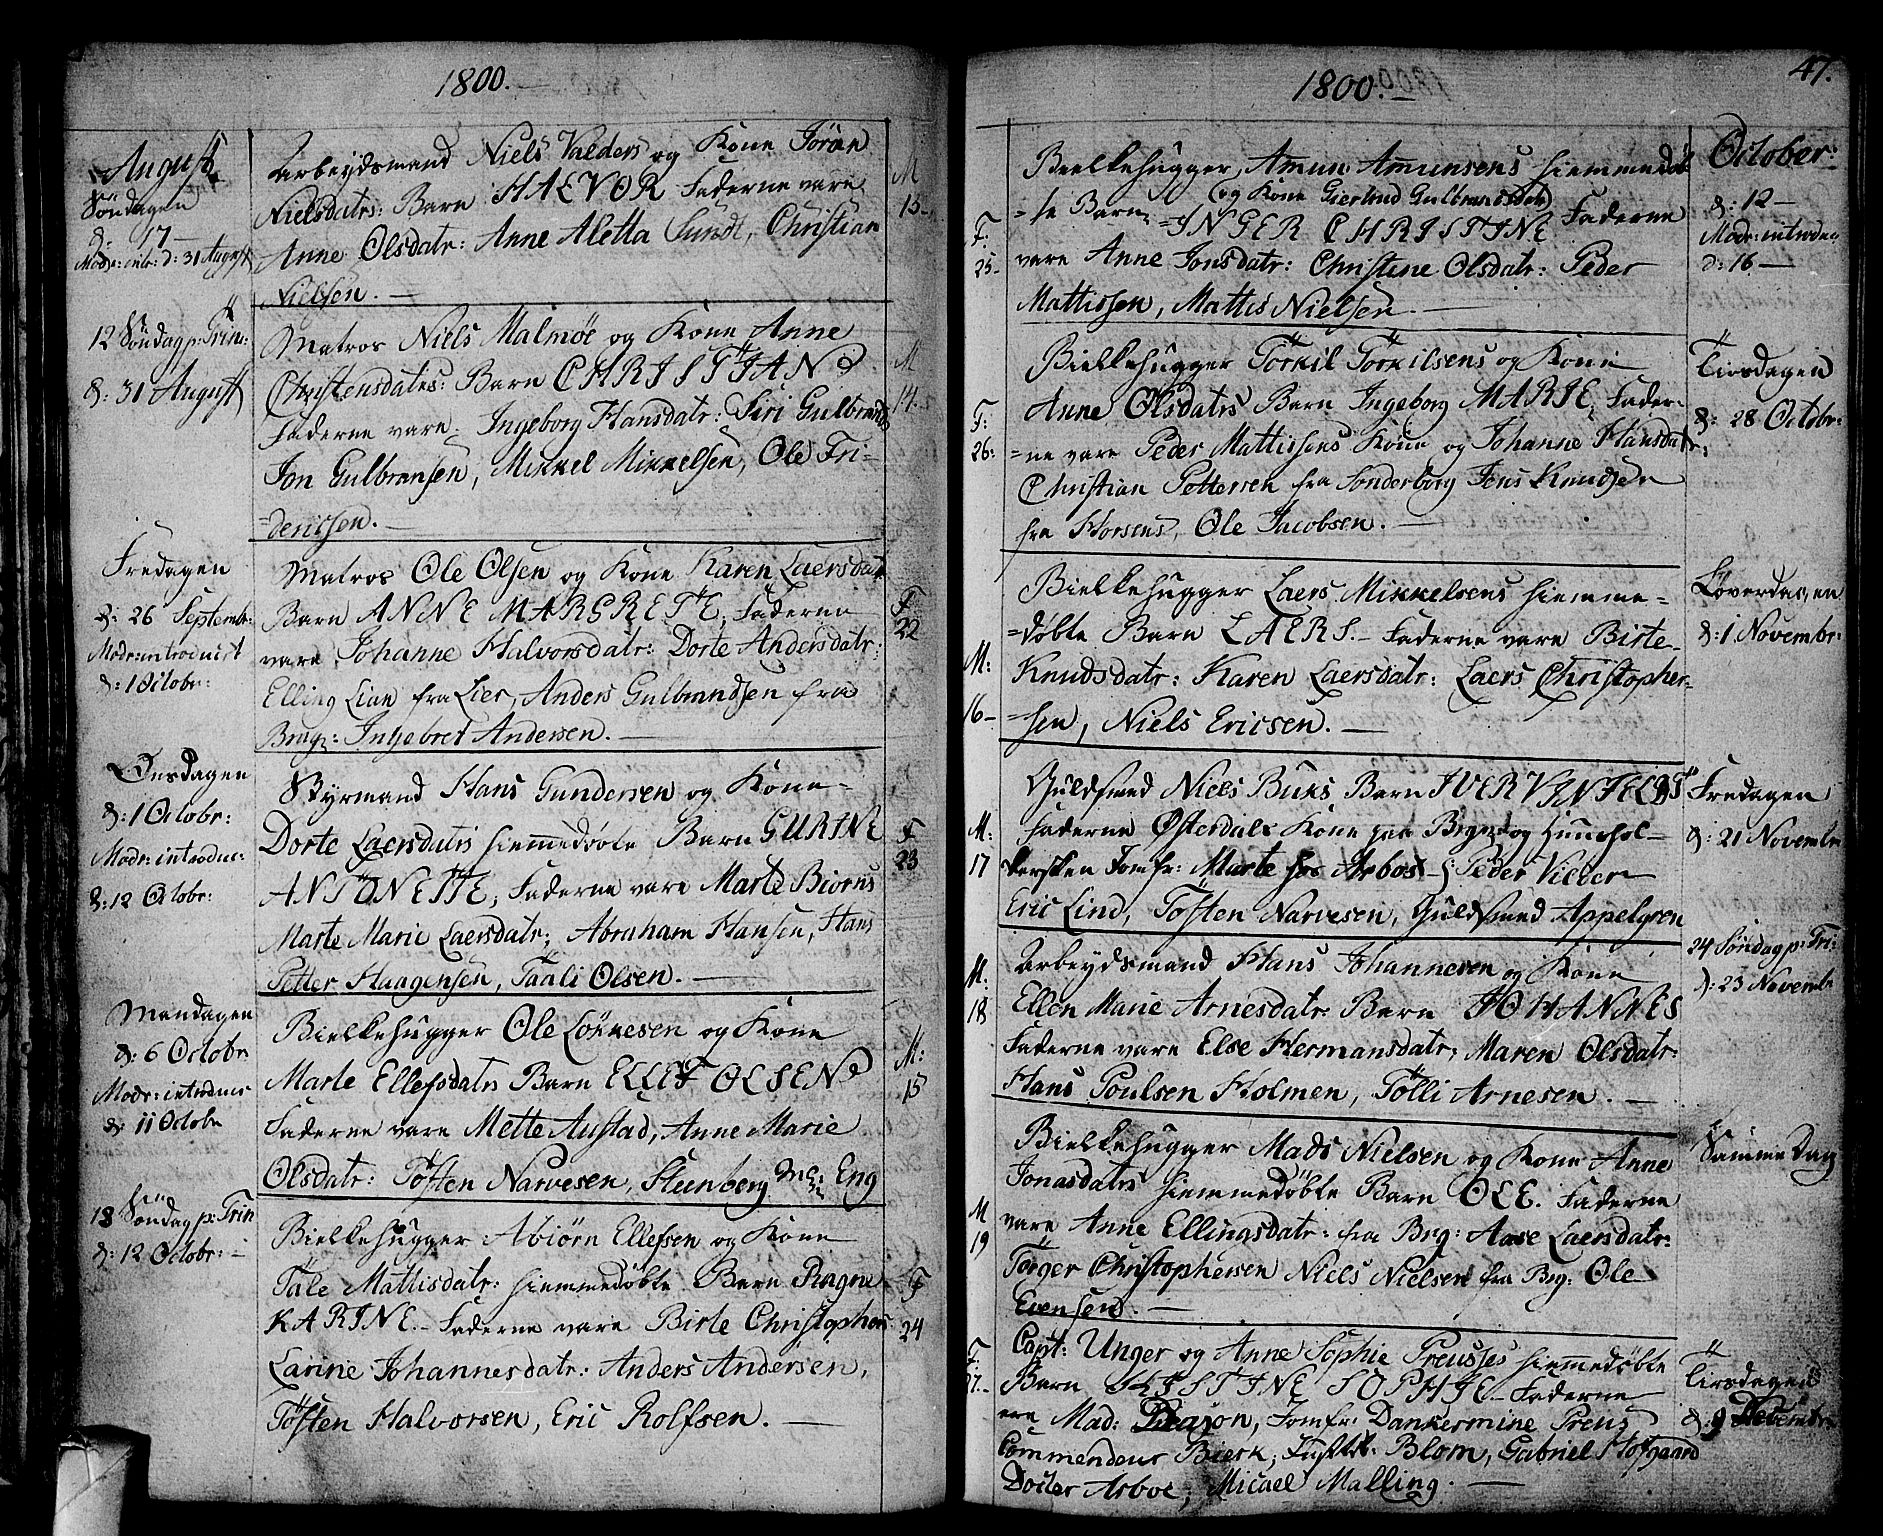 1800.
August
Søndagen
d: 17
Modr: intr: d: 31 August
Arbeydsmand Niels Valders og Kone Jøran
Nielsdatr: Barn HALVOR Faderne vare
Anne Olsdatr: Anne Aletta Sundt, Christian
Nielsen.
M
15
12 Søndag p: Trin:
d: 31 August
Matros Niels Malmøe og Kone Anne
Christensdatr: Barn CHRISTIAN
Faderne vare Ingeborg Hansdatr: Siri Gulbrands
Jon Gulbransen, Mikkel Mikkelsen, Ole Fri-
=derichsen.
M
14.
Fredagen
d: 26 Septembr:
Modr: introducirt
d: 1 Octobr:
Matros Ole Olsen og Kone Karen Laersdatr
Barn ANNE MARGRETE, Faderne
vare Johanne Halvorsdatr: Dorte Andersdatr:
Elling Lian fra Lier, Anders Gulbrandsen fra
Brag: Ingebret Andersen.
F
22
Onsdagen
d: 1 Octobr:
Modr: introduc:
d: 12 Octobr:
Styrmand Hans Gundersen og Kone
Dorte Laersdatrs hiemmedøbte Barn GURINE
ANTONETTE, Faderne vare Marte Biørns
Marte Marie Laersdatr; Abraham Hansen, Hans
Petter Haagensen, Paali Olsen.
F
23
Mandagen
d: 6 Octobr
Modr: introduc
d: 11 Octobr
Bielkehugger Ole Løkkesen og Kone
Marte Ellefsdatrs Barn ELLEF OLSEN
Faderne vare Mette Austad, Anne Marie
Olsdatr: Tosten Narvesen, Steinberg Eng
M:
15
18 Søndag p: Trin
d: 12 Octobr:
Bielkehugger Abiørn Ellefsen og Kone
Tale Mattisdatr: hiemmedøbte Barn Ragne
KARINE. Faderne vare Birte Christophers
Larine Johannesdatr: Anders Andersen,
Tosten Halvorsen, Eric Rolfsen.
F
24
1800.
47.
October:
d: 12
Modr: introduc
d: 16
Bielkehugger, Amun Amunsens hiemmedøb
=te Barn (og Kone Giertrud Gulbransdatr)
=INGER CHRISTINE Faderne
vare Anne Jonsdatr: Christine Olsdatr: Peder
Mattissen, Mattis Nielsen.
F:
25
Tirsdagen
d: 28 Octobr:
Bielkehugger Torkil Torkilsens og Kone
Anne Olsdatrs Barn Ingeborg MARIE, Fader-
=ne vare Peder Mattissens Kone og Johanne Hansdatr:
Christian Pettersen fra Sonderborg Jens Knudsen
fra Horsens, Ole Jacobsen.
F:
26:
Løverdagen
d: 1 Novembr:
Bielkehugger Laers Mikkelsens hiemme=
=døbte Barn LAERS. Faderne vare Birte
Knudsdatr: Karen Laersdatr: Laers Christopher-
=sen, Niels Ericsen.
M:
16
Fredagen
d: 21 Novembr
Guldsmed Niels Buks Barn IVER
Faderne Østerdals Kone paa Brag: og Huushol-
dersken Jomfr: Marte hos Arbos Peder Vilder
Eric Lind, Tosten Narvesen, Guldsmed Appelgren
M:
17
24 Søndag p: Tri:
d: 23 Novembr
Arbeydsmand Hans Johannesen og Kone
Ellen Marie Arnesdatr: Barn JOHANNES
Faderne vare Else Hermansdatr, Maren Olsdatr:
Hans Poulsen Holmen, Tolli Arnesen.
M:
18
Samme Dag
Bielkehugger Mads Nielsen og Kone Anne
Jonasdatrs hiemmedøbte Barn OLE. Faderne
vare Anne Ellingsdatr: fra Brag: Aase Laersdatr:
Torger Christophersen Niels Nielsen fra Brag: Ole
Evensen.
M
19
Tirsdagen
d: 9 Decembr
Capt: Unger og Anne Sophie Preusses hiemmedøbte
Barn SOPHIE Faderne
ere Mad: Jomfr: Dankermine Preus
Commendeur Bierk, Blom, Gabriel Hofgaard
Docter Arboe, Micael Malling.
F:
27.